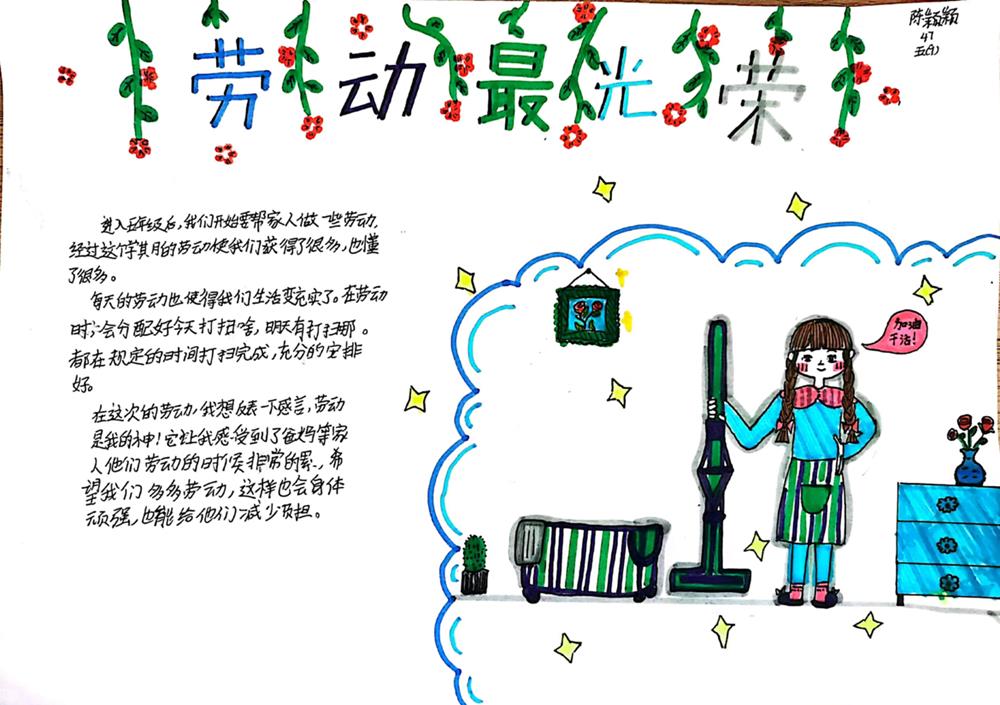 劳动最光荣
陈颖颖
47
五(1)
进入五年级后,我们开始要帮家人做一些劳动,
经过这个学其月的劳动使我们获得了很多,也懂
了很多。
每天的劳动也使得我们生活变充实了。在劳动
时,会分配好今天打扫啥,明天有打扫那。
都在规定的时间打扫完成,充分的安排
好。
在这次的劳动,我想反表一下感言,劳动
是我的神!它让我感受到了爸妈等家
人他们劳动的时候非常的累,希
望我们多多劳动,这样也会身体
顽强,也能给他们减少负担。
加油
干活!